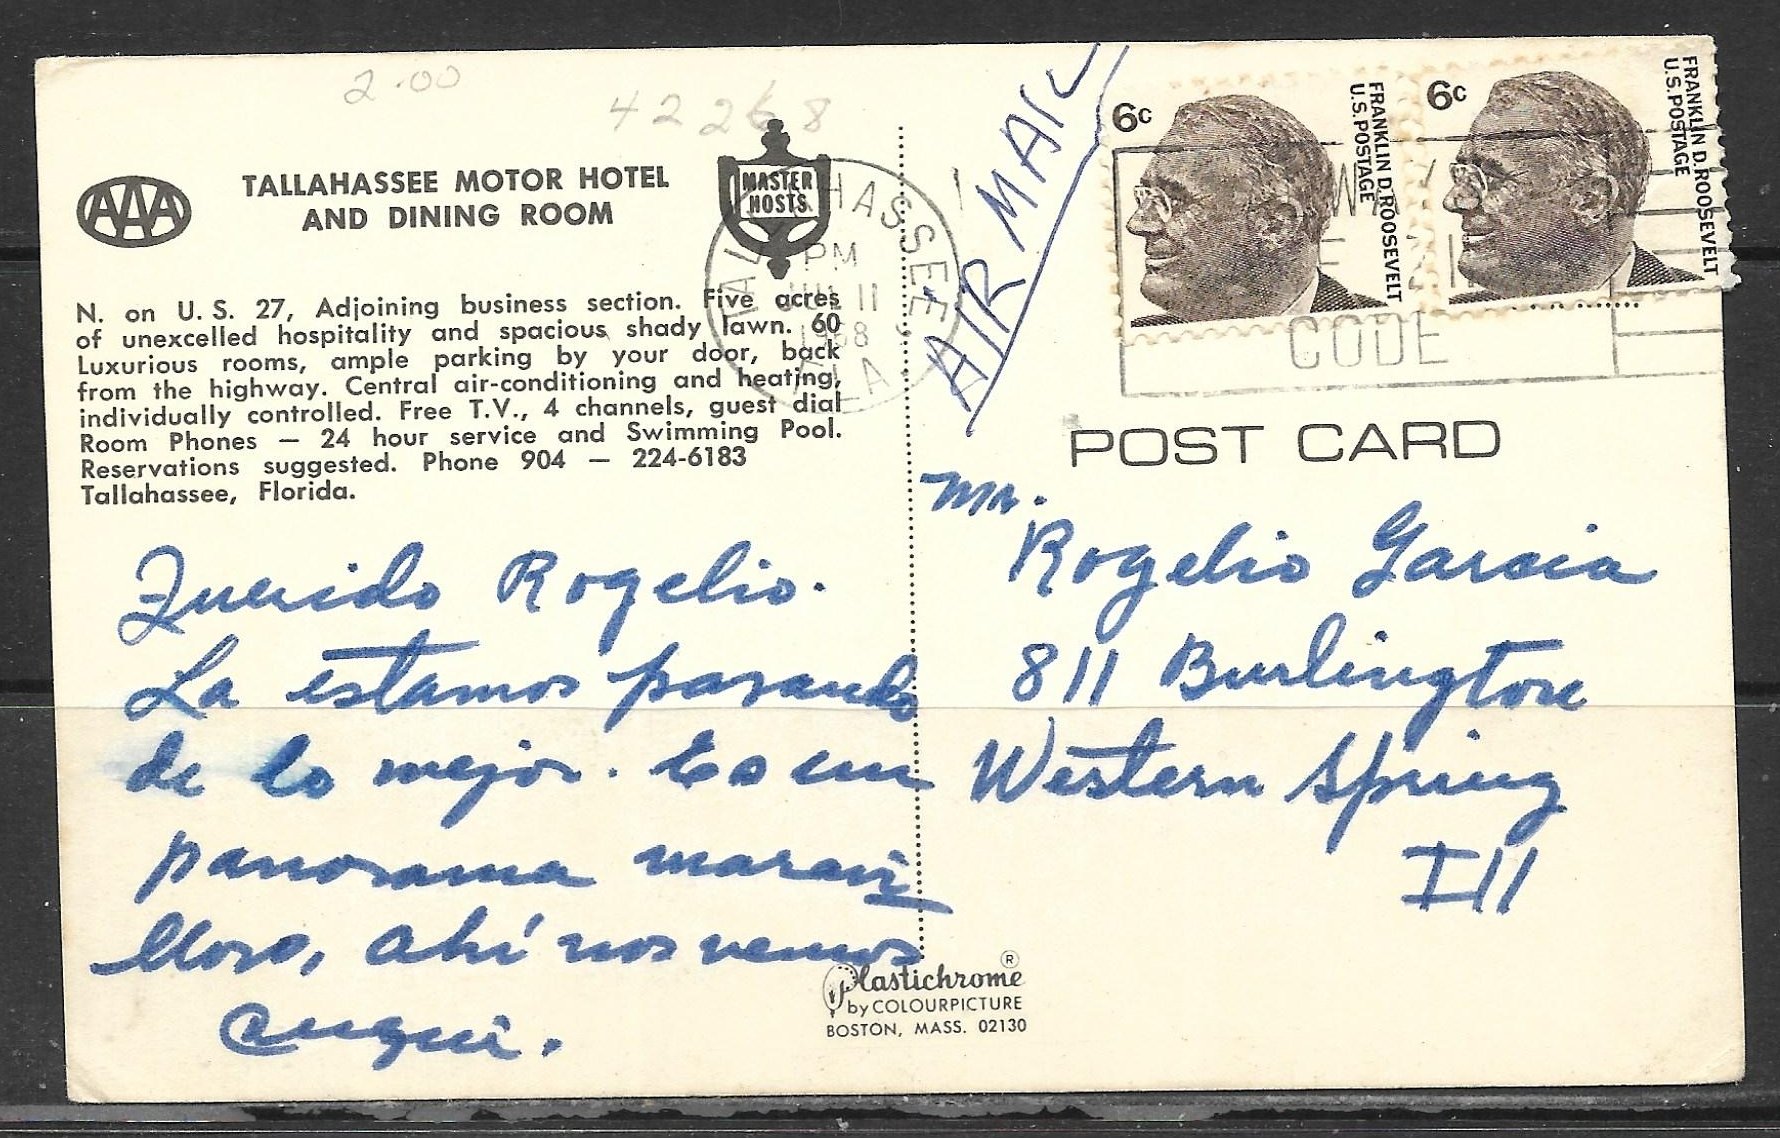 2.00
42268
AAA
TALLAHASSEE MOTOR HOTEL
AND DINING ROOM
MASTER
HOSTS
N. on U.S. 27, Adjoining business section. Five acres
of unexcelled hospitality and spacious shady lawn. 60
Luxurious rooms, ample parking by your door, back
from the highway. Central air-conditioning and heating,
individually controlled. Free T.V., 4 channels, guest dial
Room Phones — 24 hour service and Swimming Pool.
Reservations suggested. Phone 904 — 224-6183
Tallahassee, Florida.
TALLAHASSEE, FLA
PM
JUL 11
1968
Querido Rogelio.
La estamos pasando
de lo mejor. Es un
panorama maravi
lloso, ahí nos vemos
Cuqui.
AIR MAIL
6c
FRANKLIN D. ROOSEVELT
U.S. POSTAGE
6c
FRANKLIN D. ROOSEVELT
U.S. POSTAGE
CODE
POST CARD
Mr.
Rogelio Garcia
811 Burlington
Western Spring
Ill
Plastichrome ®
by COLOURPICTURE
BOSTON, MASS. 02130